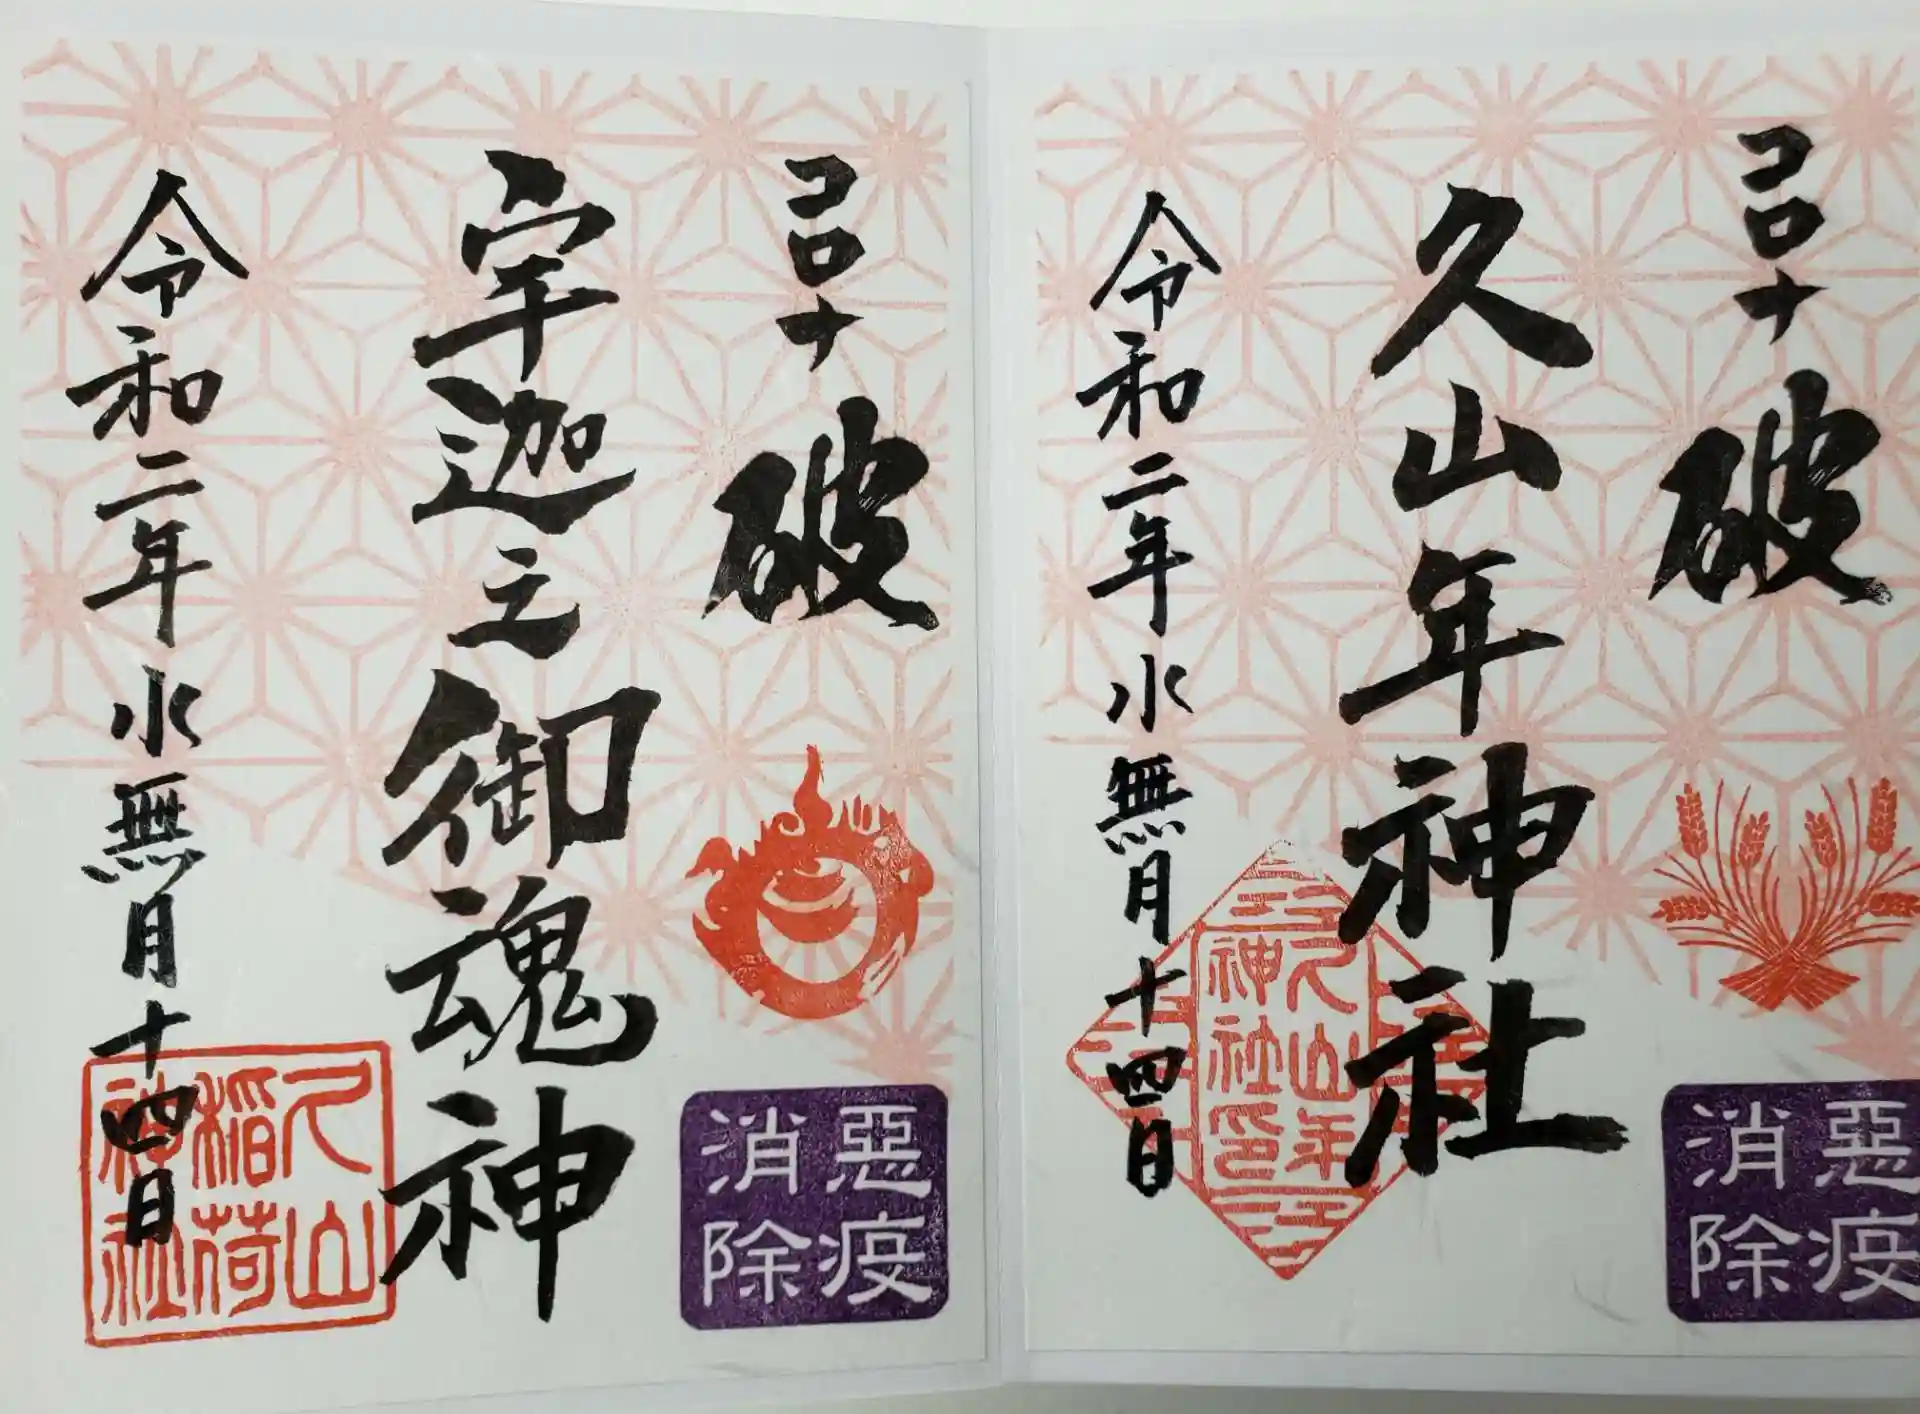 コロナ
破
久山年神社
令和二年水無月十四日
久山年
神社印
悪疫
消除
コロナ
破
宇迦之御魂神
令和二年水無月十四日
久山
稲荷
神社
悪疫
消除